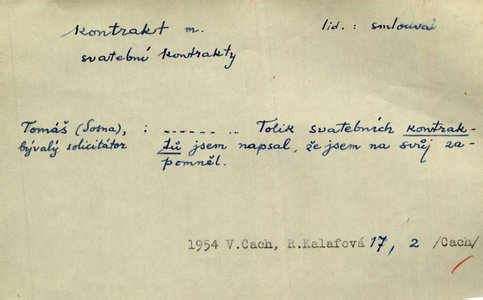 kontrakt m. lid.: smlouva
svatební kontrakty
Tomáš (Sosna), : ------ .. Tolik svatebních kontrak-
bývalý solicitátor tů jsem napsal, že jsem na svůj za-
pomněl.
1954 V.Cach, R.Kalafová 17, 2 /Cach/